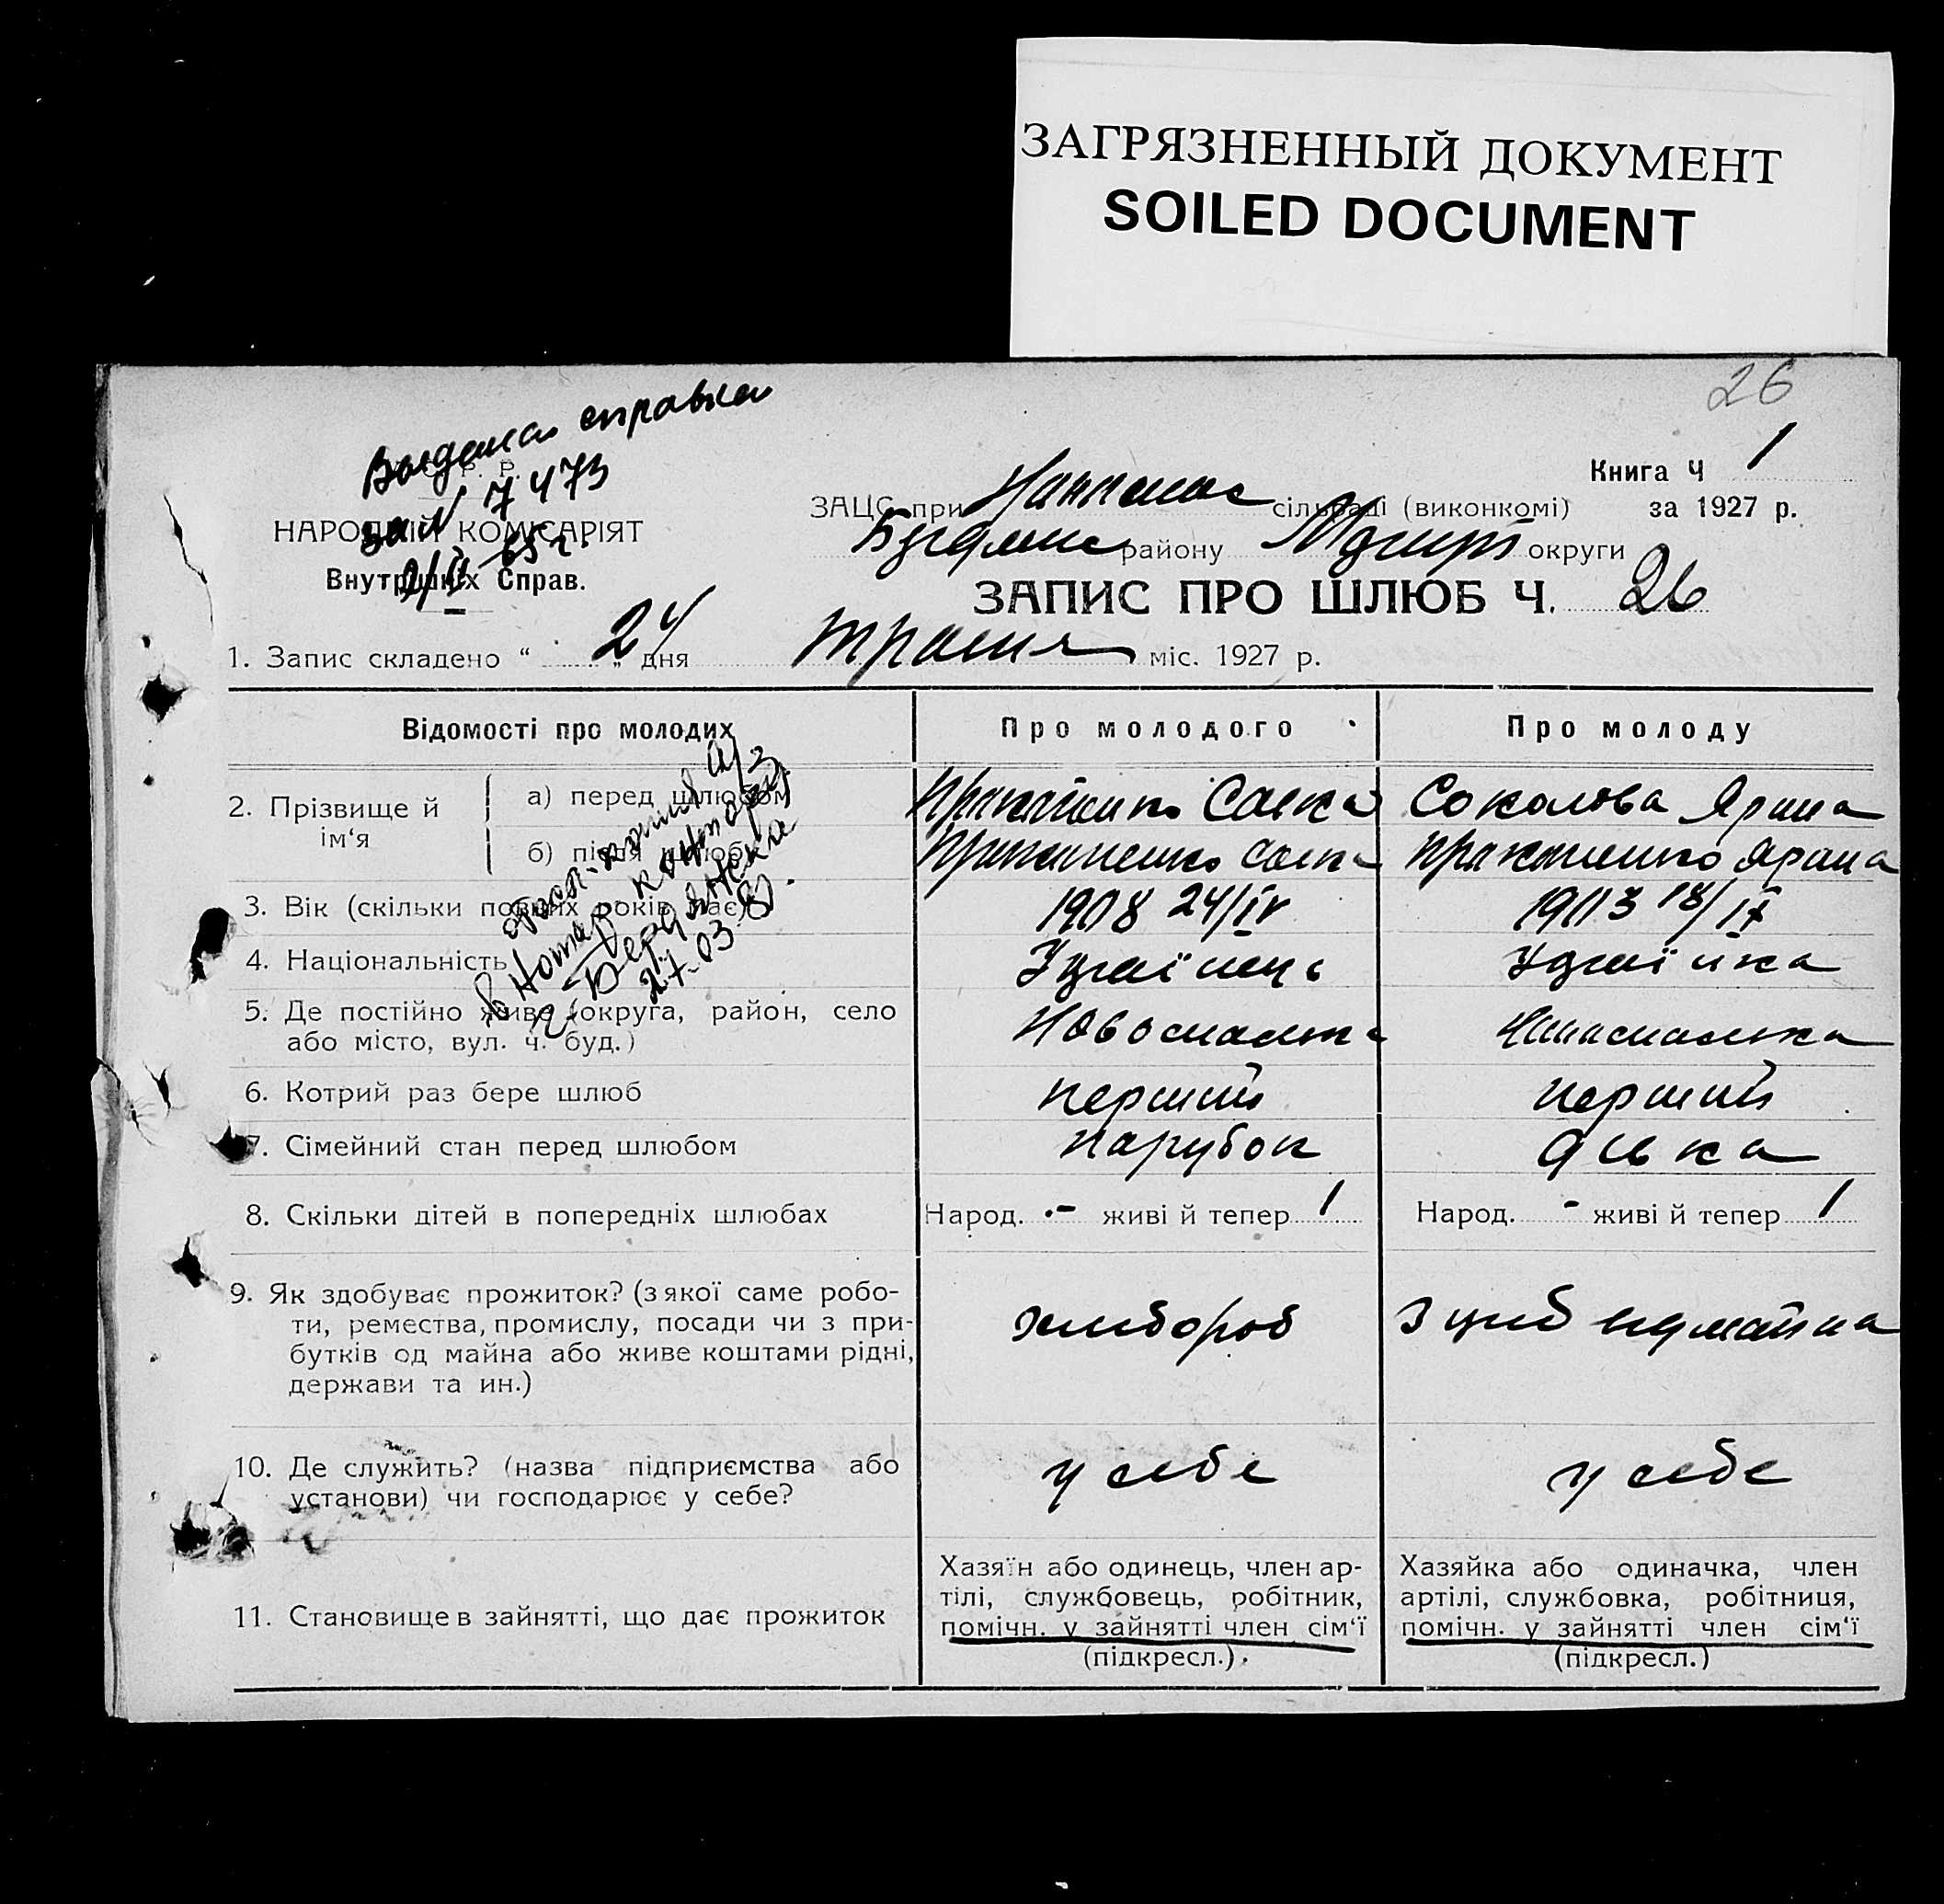 ЗАГРЯЗНЕННЫЙ ДОКУМЕНТ
SOILED DOCUMENT
26
Выдана справка
за N 7473
2/II-65 г.
Р. Р.
НАРОДНІЙ КОМІСАРІЯТ
Внутрішніх Справ.
Книга Ч 1
за 1927 р.
ЗАЦС при сільраді (виконкомі)
району округи
ЗАПИС ПРО ШЛЮБ Ч. 26
1. Запис складено “ 24 „ дня травня міс. 1927 р.
Відомості про молодих
Про молодого
Про молоду
2. Прізвище й ім‘я
а) перед шлюбом
Савка
Соколова Ярина
б) після шлюбу
Савка
Ярина
3. Вік (скільки повних років має)
1908 24/IV
1903 18/IX
4. Національність
Украінець
Украінка
5. Де постійно живе (округа, район, село
або місто, вул. ч. буд.)
6. Котрий раз бере шлюб
перший
перший
7. Сімейний стан перед шлюбом
парубок
дівка
8. Скільки дітей в попередніх шлюбах
Народ. - живі й тепер 1
Народ. - живі й тепер 1
9. Як здобуває прожиток? (з якої саме робо-
ти, ремества, промислу, посади чи з при-
бутків од майна або живе коштами рідні,
держави та ин.)
хлибороб
10. Де служить? (назва підприємства або
установи) чи господарює у себе?
у себе
у себе
11. Становище в зайнятті, що дає прожиток
Хазяїн або одинець, член ар-
тілі, службовець, робітник,
помічн. у зайнятті член сім‘ї
(підкресл.)
Хазяйка або одиначка, член
артілі, службовка, робітниця,
помічн. у зайнятті член сім‘ї
(підкресл.)
в Нотар. контору
г. Бердянска
27.03.